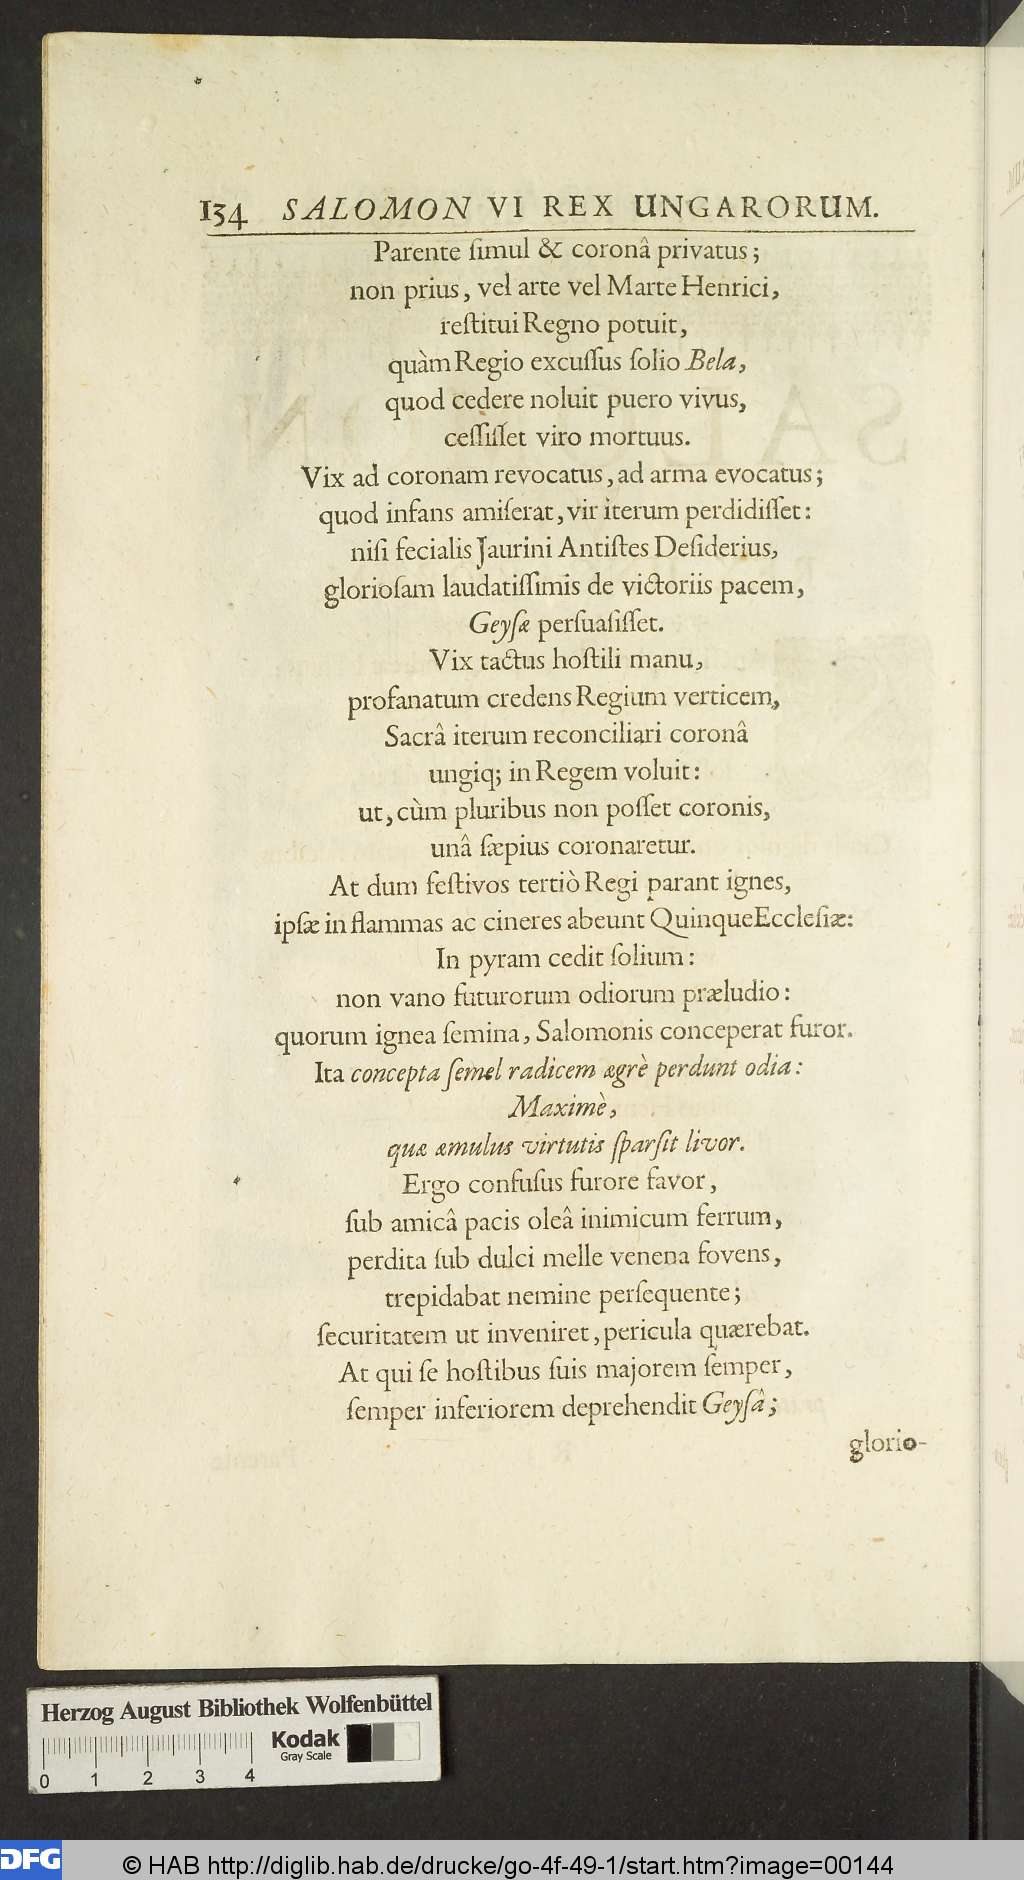 134 SALOMON VI REX UNGARORUM.
Parente ſimul & coronâ privatus;
non prius, vel arte vel Marte Henrici,
reſtitui Regno potuit,
quàm Regio excuſſus ſolio Bela,
quod cedere noluit puero vivus,
ceſſiſſet viro mortuus.
Vix ad coronam revocatus, ad arma evocatus;
quod infans amiſerat, vir iterum perdidiſſet:
niſi fecialis Jaurini Antiſtes Deſiderius,
glorioſam laudatiſſimis de victoriis pacem,
Geyſæ perſuaſiſſet.
Vix tactus hoſtili manu,
profanatum credens Regium verticem,
Sacrâ iterum reconciliari coronâ
ungiq; in Regem voluit:
ut, cùm pluribus non poſſet coronis,
unâ ſæpius coronaretur.
At dum feſtivos tertiò Regi parant ignes,
ipſæ in flammas ac cineres abeunt Quinque Eccleſiæ:
In pyram cedit ſolium:
non vano futurorum odiorum præludio:
quorum ignea ſemina, Salomonis conceperat furor.
Ita concepta ſemel radicem ægrè perdunt odia:
Maximè,
quæ æmulus virtutis ſparſit livor.
Ergo confuſus furore favor,
ſub amicâ pacis oleâ inimicum ferrum,
perdita ſub dulci melle venena fovens,
trepidabat nemine perſequente;
ſecuritatem ut inveniret, pericula quærebat.
At qui ſe hoſtibus ſuis majorem ſemper,
ſemper inferiorem deprehendit Geyſâ;
glorio-
Herzog August Bibliothek Wolfenbüttel
Kodak
Gray Scale
0 1 2 3 4
DFG
© HAB http://diglib.hab.de/drucke/go-4f-49-1/start.htm?image=00144